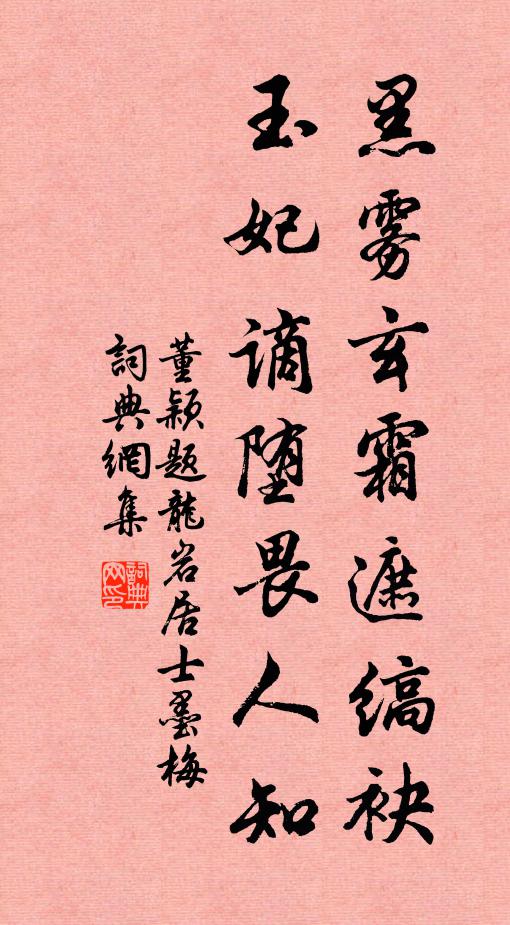 黑雾玄霜遮缟袂
玉妃谪堕畏人知
董颖题龙岩居士墨梅
詞典網集
詞典网印